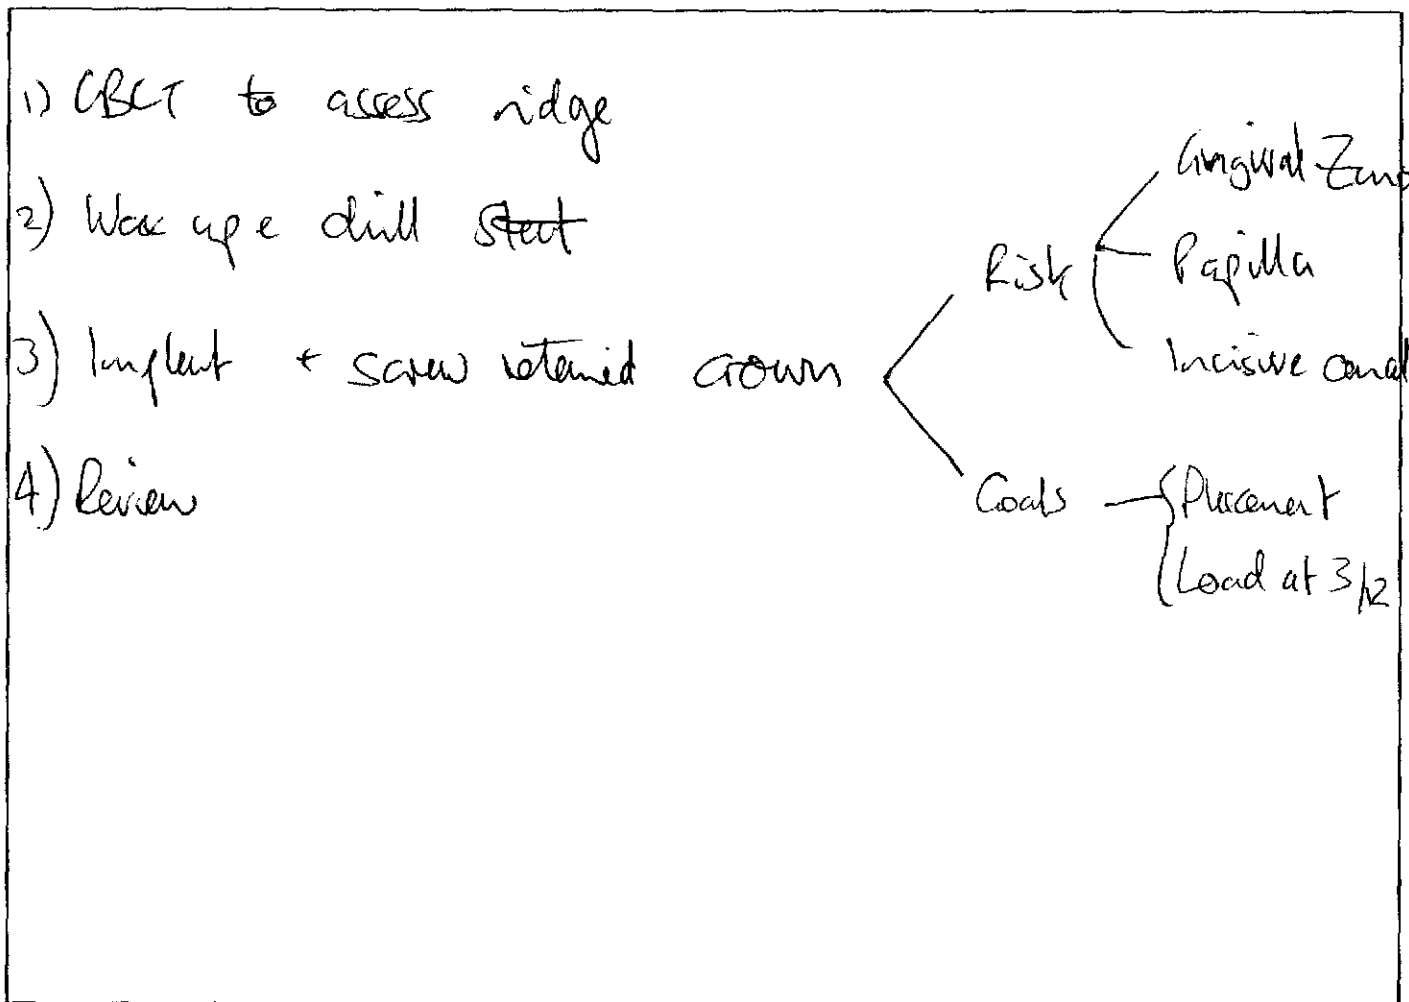 1) CBCT to assess ridge
2) Wax up c drill stent
3) Implant + screw retained crown
4) Review
Risk
Gingival Zeno
Papilla
Incisive canal
Goals
Placement
Load at 3/12